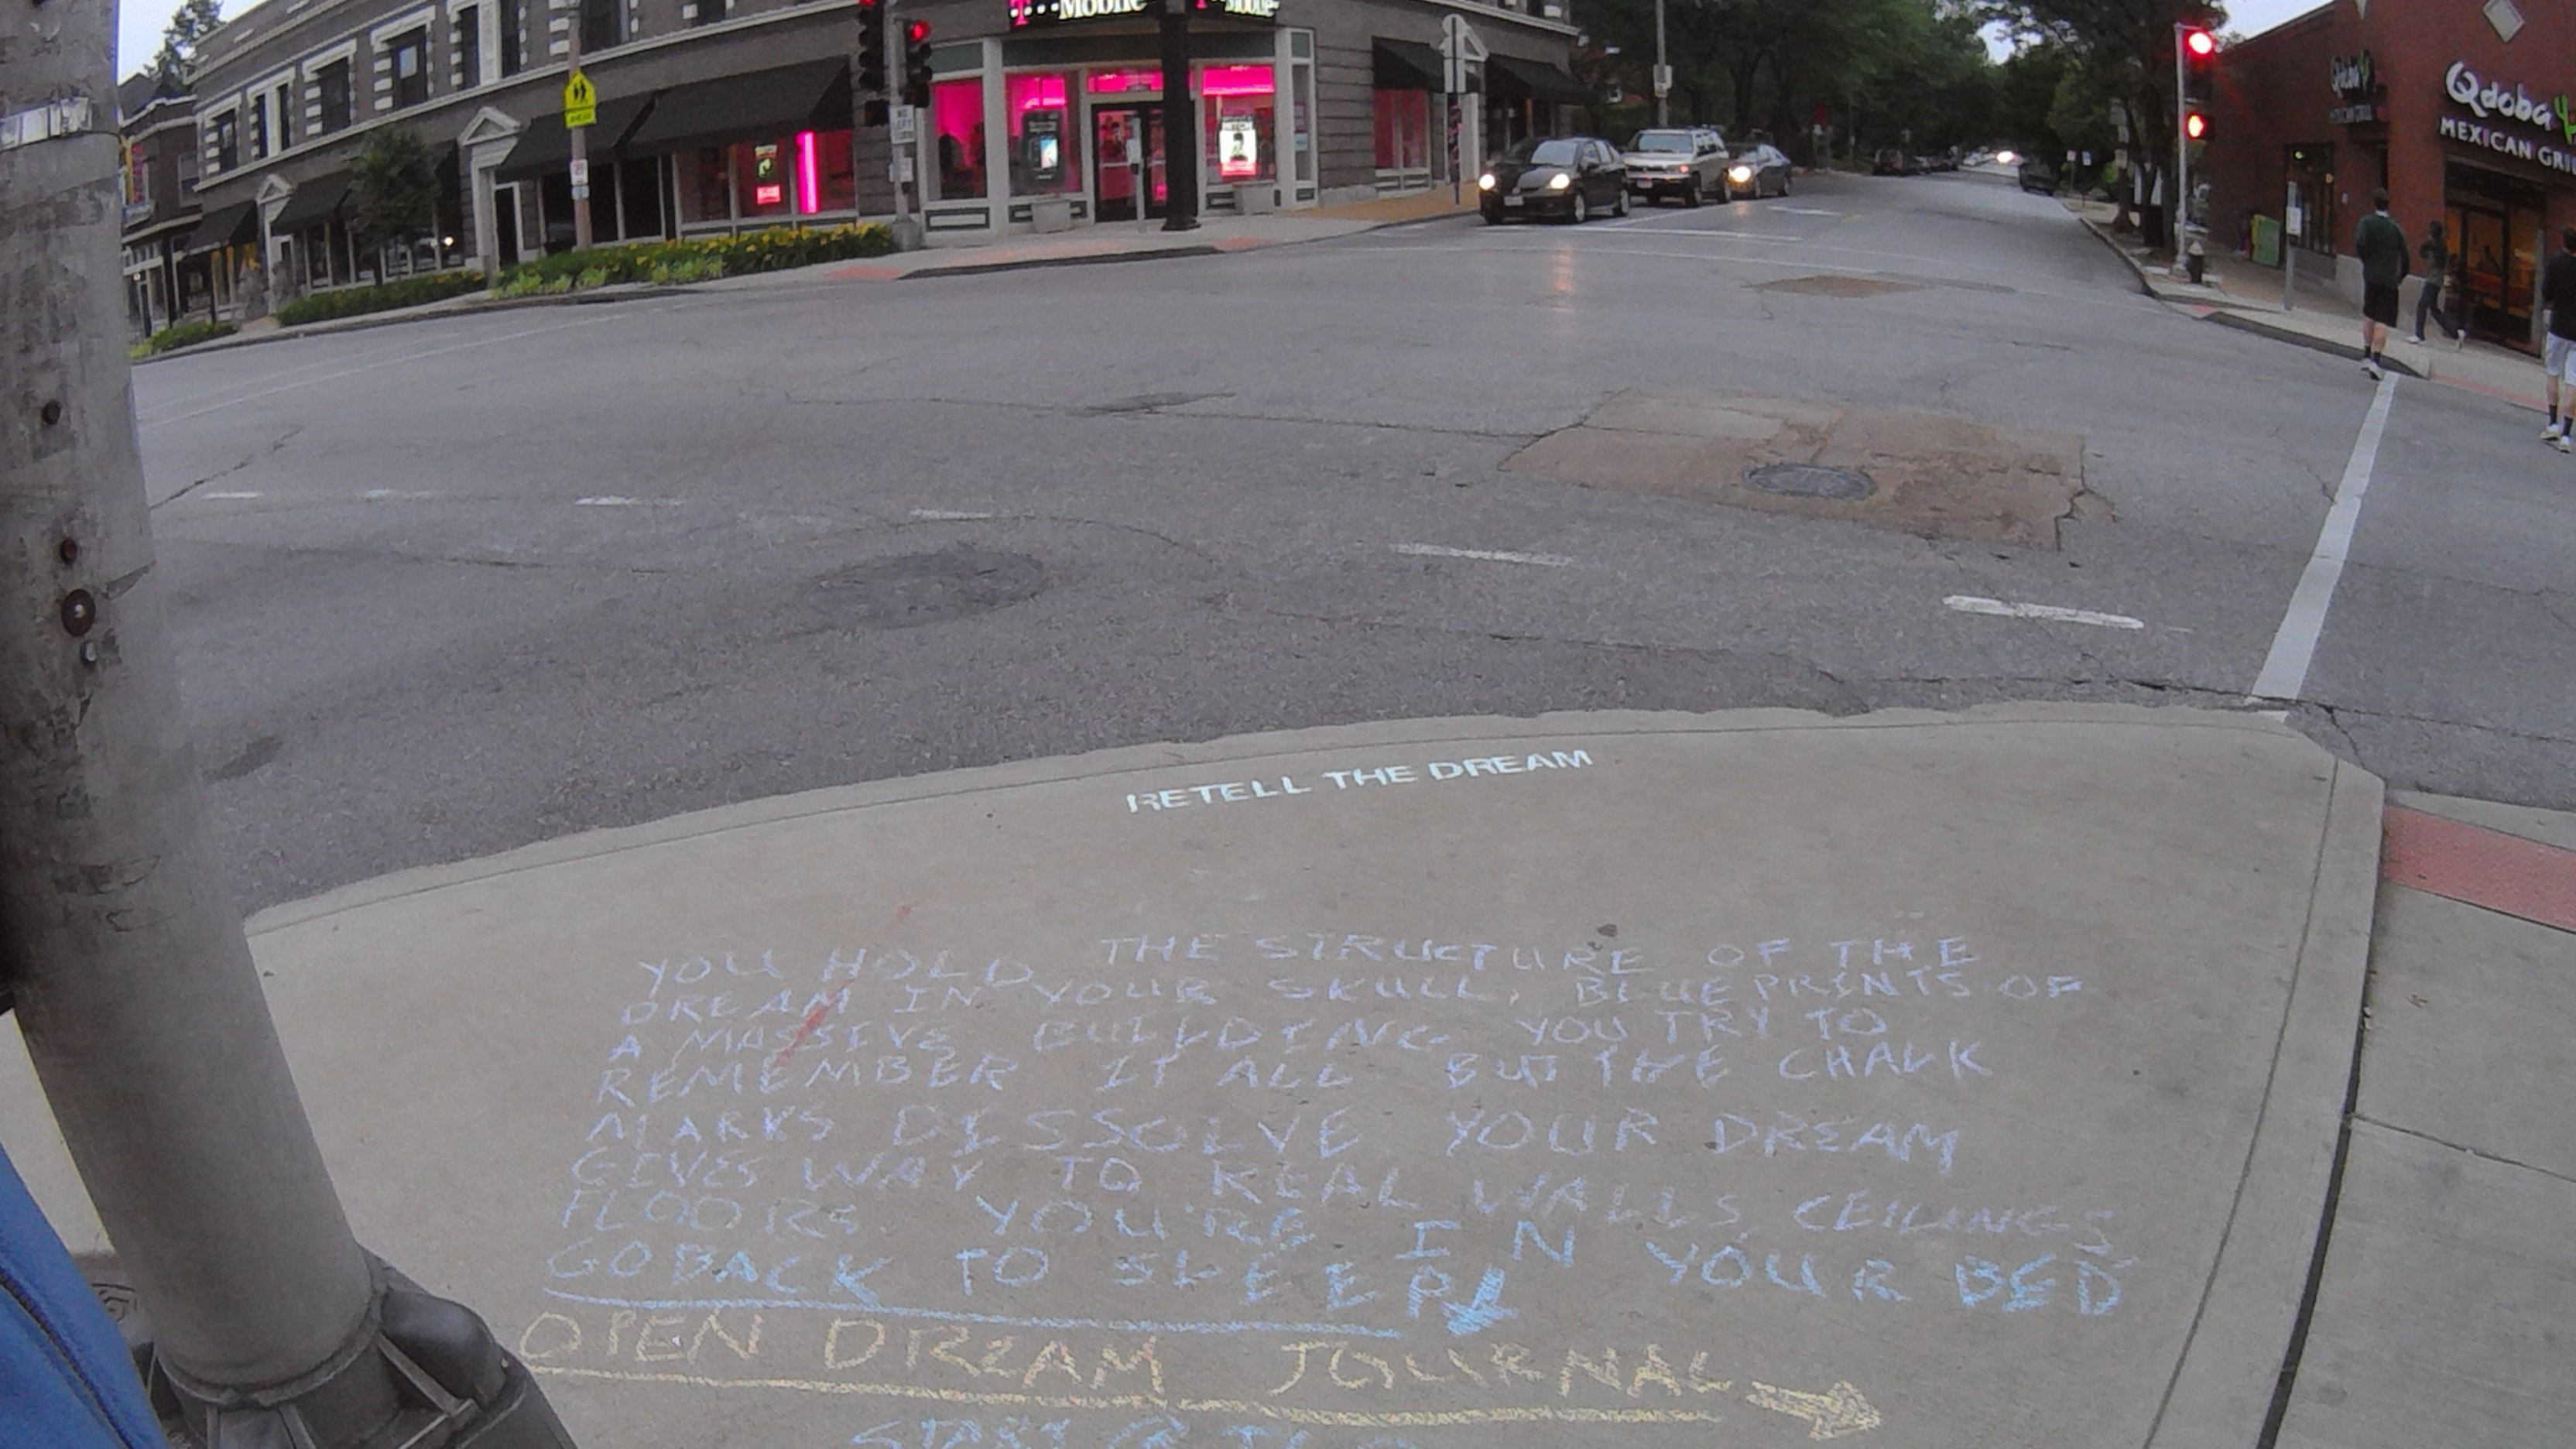 T··Mobile
T Mobile
AHEAD
NO
LEFT
Qdoba
MEXICAN GRILL
Qdoba
MEXICAN GRI
RETELL THE DREAM
YOU HOLD THE STRUCTURE OF THE
DREAM IN YOUR SKULL, BLUEPRINTS OF
A MASSIVE BUILDING YOU TRY TO
REMEMBER IT ALL BUT THE CHALK
MARKS DISSOLVE YOUR DREAM
GIVES WAY TO REAL WALLS, CEILINGS,
FLOORS YOU'RE IN YOUR BED
GO BACK TO SLEEP
OPEN DREAM JOURNAL
START @